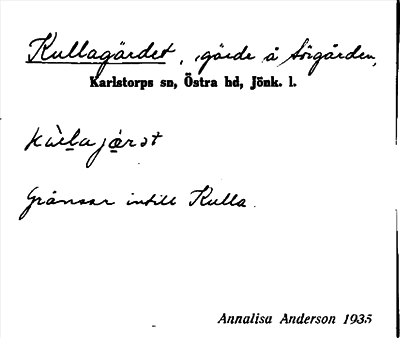 Kullagärdet, gärde å Sörgården,
Karlstorps sn, Östra hd, Jönk. l.
Gränsar intill Kulla.
Annalisa Anderson 1935